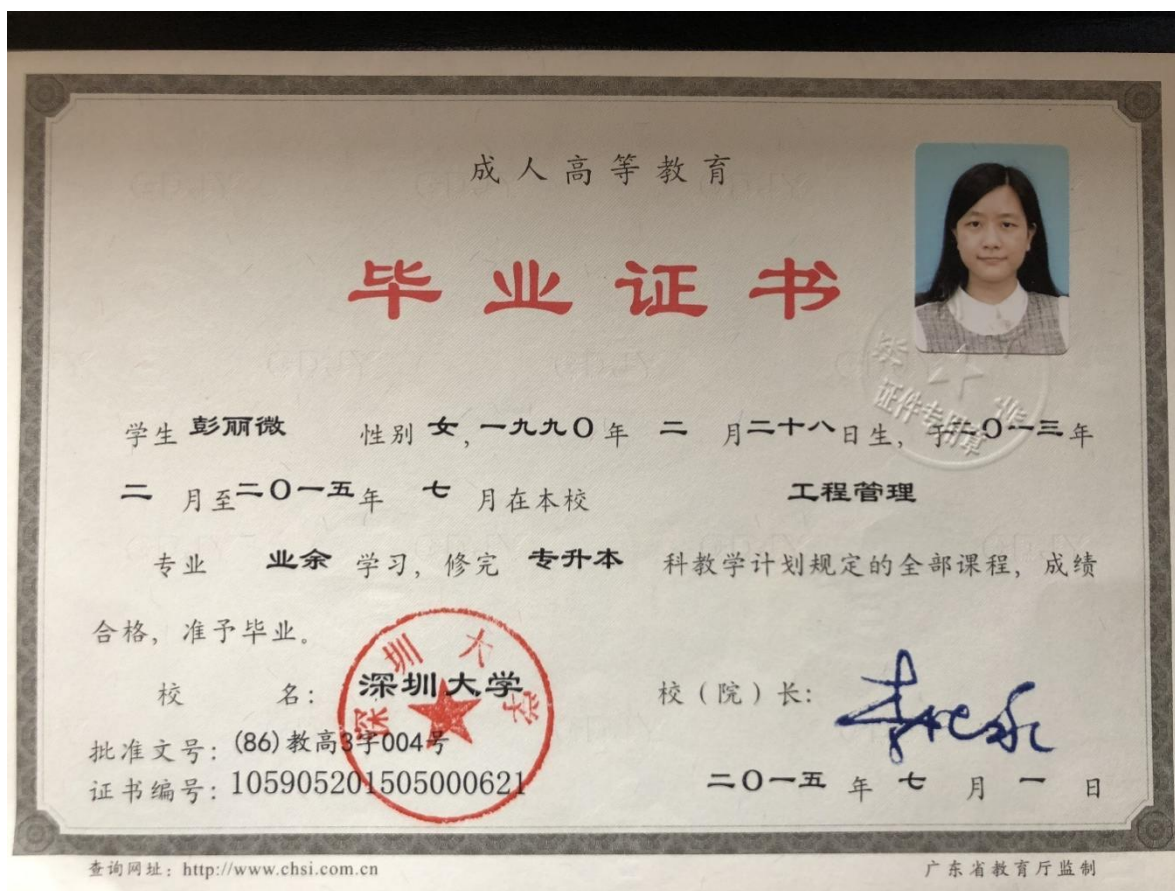 成人高等教育
毕业证书
学生 彭丽微 性别 女,一九九〇年 二 月二十八日生,于二〇一三年
二 月至二〇一五年 七 月在本校 工程管理
专业 业余 学习,修完 专升本 科教学计划规定的全部课程,成绩
合格,准予毕业。
校 名: 深圳大学
校(院)长:
批准文号:(86)教高3字004号
证书编号:105905201505000621
二〇一五 年 七 月 一 日
深圳大学
证件专用章
查询网址:http://www.chsi.com.cn
广东省教育厅监制